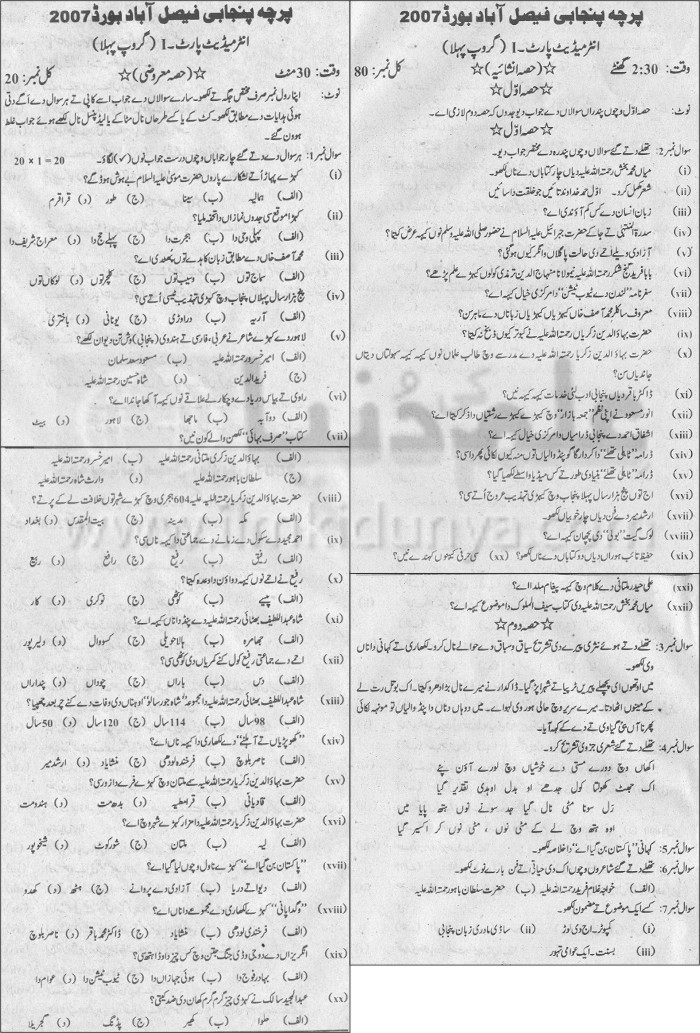 پرچہ پنجابی فیصل آباد بورڈ 2007
انٹرمیڈیٹ پارٹ-I (گروپ پہلا)
وقت: 2:30 گھنٹے ☆(حصہ انشائیہ)☆ کل نمبر: 80
☆حصہ اوّل☆
نوٹ: حصہ اوّل وچوں پندراں سوالاں دے جواب دیو جدوں کہ حصہ دوم لازمی اے۔
☆حصہ اوّل☆
سوال نمبر 2: تھلے دتے گئے سوالاں وچوں پندرہ دے مختصر جواب دیو۔
(i) میاں محمد بخش رحمتہ اللہ علیہ دیاں چار کتاباں دے ناں لکھو۔
(ii) شعر مکمل کرو۔ اوّل حمد خداوند تائیں جو خلقت دا سائیں
(iii) زبان انسان دے کس کم آؤندی اے؟
(iv) سدرۃ المنتہیٰ تے جا کے حضرت جبرائیل علیہ السلام نے حضور صلی اللہ علیہ وسلم نوں کیہ عرض کیتا؟
(v) آزادی ویلے اتے دی حالت پاگلاں وانگر کیوں ہو گئی؟
(vi) بابا فرید گنج شکر رحمتہ اللہ علیہ نے مولانا منہاج الدین ترمذی کولوں کیہڑے علم پڑھے؟
(vii) سفر نامہ "لندن دے ٹیوب ٹیشن" دا مرکزی خیال کیہ اے؟
(viii) معروف سکالر محمد آصف خاں کیہڑیاں کیہڑیاں زباناں دے ماہر سن؟
(ix) حضرت بہاؤ الدین زکریا رحمتہ اللہ علیہ نے کبوتر کیوں ذبح نہ کیتا؟
(x) حضرت بہاؤ الدین زکریا رحمتہ اللہ علیہ دے مدرسے وچ طالب علماں نوں کیہ کیہ سہولتاں دیتیاں
جاندیاں سن؟
(xi) ڈاکٹر باقر دیاں پنجابی ادب لئی خدمات کیہ کیہ نیں؟
(xii) انور مسعود نے اپنی نظم "جمعہ بازار" وچ کیہڑے کیہڑے رشتیاں دا ذکر کیتا اے؟
(xiii) اشفاق احمد دے پنجابی ڈرامیاں دا مرکزی خیال کیہ اے؟
(xiv) ڈرامہ "ٹاہلی تھلے" دا کردار گاما گوہنڈ والیاں توں منہ کیوں لکائی پھردا سی؟
(xv) ڈرامہ "ٹاہلی تھلے" بنیادی طور تے کس میڈیا واسطے لکھیا گیا؟
(xvi) اج توں پنج ہزار سال پہلاں پنجاب وچ کیہڑی تہذیب عروج اتے سی؟
(xvii) ارشد میر دے فن دیاں چار خوبیاں لکھو۔
(xviii) لوک گیت "بولی" دی پچھان کیہ اے؟
(xix) حفیظ تائب ہوراں دیاں دو کتاباں دے ناں لکھو؟ (xx) سی حرفی کینہوں کہندے نیں؟
(xxi) علی حیدر ملتانی دے کلام وچ کیہ پیغام ملدا اے؟
(xxii) میاں محمد بخش رحمتہ اللہ علیہ دی کتاب سیف الملوک دا موضوع کیہ اے؟
☆حصہ دوم☆
سوال نمبر 3: تھلے دتے ہوئے نثری پیرے دی تشریح سیاق و سباق دے حوالے نال کرو۔ لکھاری تے کہانی دا ناں
وی لکھو۔
میں اوتھوں ای پچھلے پیریں ٹرپیا تے شہر اپڑ گیا۔
سوال نمبر 4: تھلے دتے گئے شعری جزو دی تشریح کرو۔
اکھاں وچ دورے مستی دے خوشیاں وچ لورے آؤن پئے
اک جھٹ کھلوتا کول جدھے او بدل اوہدی تقدیر گیا
رَل سونا مٹی نال گیا جد سونے نوں ہتھ پایا میں
اوہ ہتھ وچ لے کے مٹی نوں، مٹی نوں کر اکسیر گیا
سوال نمبر 5: کہانی "پاکستان بن گیا اے" دا خلاصہ لکھو۔
سوال نمبر 6: تھلے دتے گئے شاعروں وچوں اک دی حیاتی اتے فن بارے نوٹ لکھو۔
(الف) خواجہ غلام فرید رحمتہ اللہ علیہ (ب) حضرت سلطان باہو رحمتہ اللہ علیہ
سوال نمبر 7: کسے ایک موضوع تے مضمون لکھو۔
(i) کمپیوٹر اج دی لوڑ (ii) ساڈی مادری زبان پنجابی
(iii) بسنت۔ ایک عوامی تہوار
پرچہ پنجابی فیصل آباد بورڈ 2007
انٹرمیڈیٹ پارٹ-I (گروپ پہلا)
وقت: 30 منٹ ☆(حصہ معروضی)☆ کل نمبر: 20
نوٹ: اپنا رول نمبر صرف مختص جگہ تے لکھو۔ سارے سوالاں دے جواب ایسے کاپی تے ہر سوال دے اگے دتی
ہوئی ہدایات دے مطابق لکھو۔ کٹ کے یا کسے طرحاں نال مٹا کے یا لیڈ پنسل نال لکھے ہوئے جواب غلط
ہوون گے۔
سوال نمبر 1: ہر سوال دے دتے گئے چار جواباں وچوں درست جواب نوں (✓) لگاؤ۔ 20 x 1 = 20
(i) کیہڑے پہاڑ اُتے لشکارے پاروں حضرت موسیٰ علیہ السلام بے ہوش ہو گئے؟
(الف) ہمالیہ (ب) سینا (ج) طور (د) قراقرم
(ii) کیہڑا موقع سی جدوں نمازاں دا تحفہ ملیا؟
(الف) پہلی وحی دا (ب) ہجرت دا (ج) پہلے حج دا (د) معراج شریف دا
(iii) محمد آصف خاں دے مطابق زبان کاہدے توں پُھٹدی اے؟
(الف) سماج توں (ب) وسیب توں (ج) کلچر توں (د) لوکاں توں
(iv) پنج ہزار سال پہلاں پنجاب وچ کیہڑی تہذیب ٹیسی اُتے سی؟
(الف) آریہ (ب) دراوڑی (ج) یونانی (د) باختری
(v) لاہور دے کیہڑے شاعر نے عربی، فارسی تے ہندوی (پنجابی) وِش تن دیوان لکھے؟
(الف) امیر خسرو رحمتہ اللہ علیہ (ب) مسعود سعد سلمان
(ج) فرید الدین (د) شاہ حسین رحمتہ اللہ علیہ
(vi) راوی تے بیاس دریا دے وچکار لے علاقے نوں کیہہ آکھا جاندا اے؟
(الف) دوآبہ (ب) ماجھا (ج) لاہور (د) بیٹ
(vii) کتاب "صرف بہائی" لکھن والے کون نیں؟
(الف) بہاؤ الدین زکری ملتانی رحمتہ اللہ علیہ (ب) امیر خسرو رحمتہ اللہ علیہ
(ج) سلطان باہو رحمتہ اللہ علیہ (د) وارث شاہ رحمتہ اللہ علیہ
(viii) حضرت بہاؤ الدین زکریا رحمتہ اللہ علیہ 604 ہجری وچ کیہڑے شہر توں خلافت لے کے پرتے؟
(الف) مکہ (ب) مدینہ (ج) بیت المقدس (د) بغداد
(ix) احمد مجید دے سکول دے زمانے دے جماعتی دا کیہہ ناں سی؟
(الف) رفیق (ب) رفیع (ج) رافع (د) ربیع
(x) رفیع نے احمے نوں کیہہ دواؤن دا وعدہ کیتا؟
(الف) پیسے (ب) کوٹھی (ج) نوکری (د) کار
(xi) شاہ عبداللطیف بھٹائی رحمتہ اللہ علیہ دے پنڈ دا ناں کیہہ اے؟
(الف) جھامرہ (ب) ہالا حویلی (ج) کسووال (د) دلیر پور
(xii) احمے دے جماعتی رفیع کول کنے کمریاں دی کوٹھی سی؟
(الف) دس (ب) باراں (ج) چوداں (د) پندراں
(xiii) شاہ عبداللطیف بھٹائی رحمتہ اللہ علیہ دا مجموعہ "شاہ جو رسالو" اوہناں دی وفات دے کنے چر بعد چھپیا؟
(الف) 98 سال (ب) 114 سال (ج) 120 سال (د) 50 سال
(xiv) "کھوپڑیاں تے آہلنے" دے لکھاری دا کیہہ ناں اے؟
(الف) ناصر بلوچ (ب) فرخندہ لودھی (ج) منشایاد (د) ارشد میر
(xv) حضرت بہاؤ الدین زکریا رحمتہ اللہ علیہ سے ملتان وچ کیہڑے فرقے دا زور سی؟
(الف) قادیانی (ب) قرامطیہ (ج) بدھ مت (د) ہندومت
(xvi) حضرت بہاؤ الدین زکریا رحمتہ اللہ علیہ دا مزار کیہڑے شہر وچ اے؟
(الف) لیہ (ب) ملتان (ج) شورکوٹ (د) شیخوپور
(xvii) "پاکستان بن گیا اے" کیہڑے ناول وچوں لیا گیا اے؟
(الف) دیوا تے دریا (ب) آزادی دے پروانے (ج) ہٹھ (د) کھدو
(xviii) "وگدا پانی" کیہڑے لکھاری دے مجموعے دا ناں اے؟
(الف) فرخندہ لودھی (ب) منشایاد (ج) ڈاکٹر محمد باقر (د) ناصر بلوچ
(xix) انگریزاں دے دوجی وڈی جنگ جتن وچ کس چیز دا وڈا ہتھ سی؟
(الف) بہادر فوج دا (ب) ہوائی جہازاں دا (ج) ٹیوب ٹیشن دا (د) عوام دا
(xx) عبدالمجید سالک نے کیہڑی چیز گرم گرم کھان دی ضد کیتی؟
(الف) حلوا (ب) کھیر (ج) پڈنگ (د) گجریلا